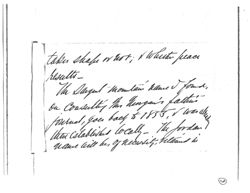 takes shape or not, & whether peace
results —
The Sargent mountain name I found,
on consulting this Hungan's father's
journal, goes back to 1853, & was
then established locally — The Jordan
name will be, of necessity, retained in